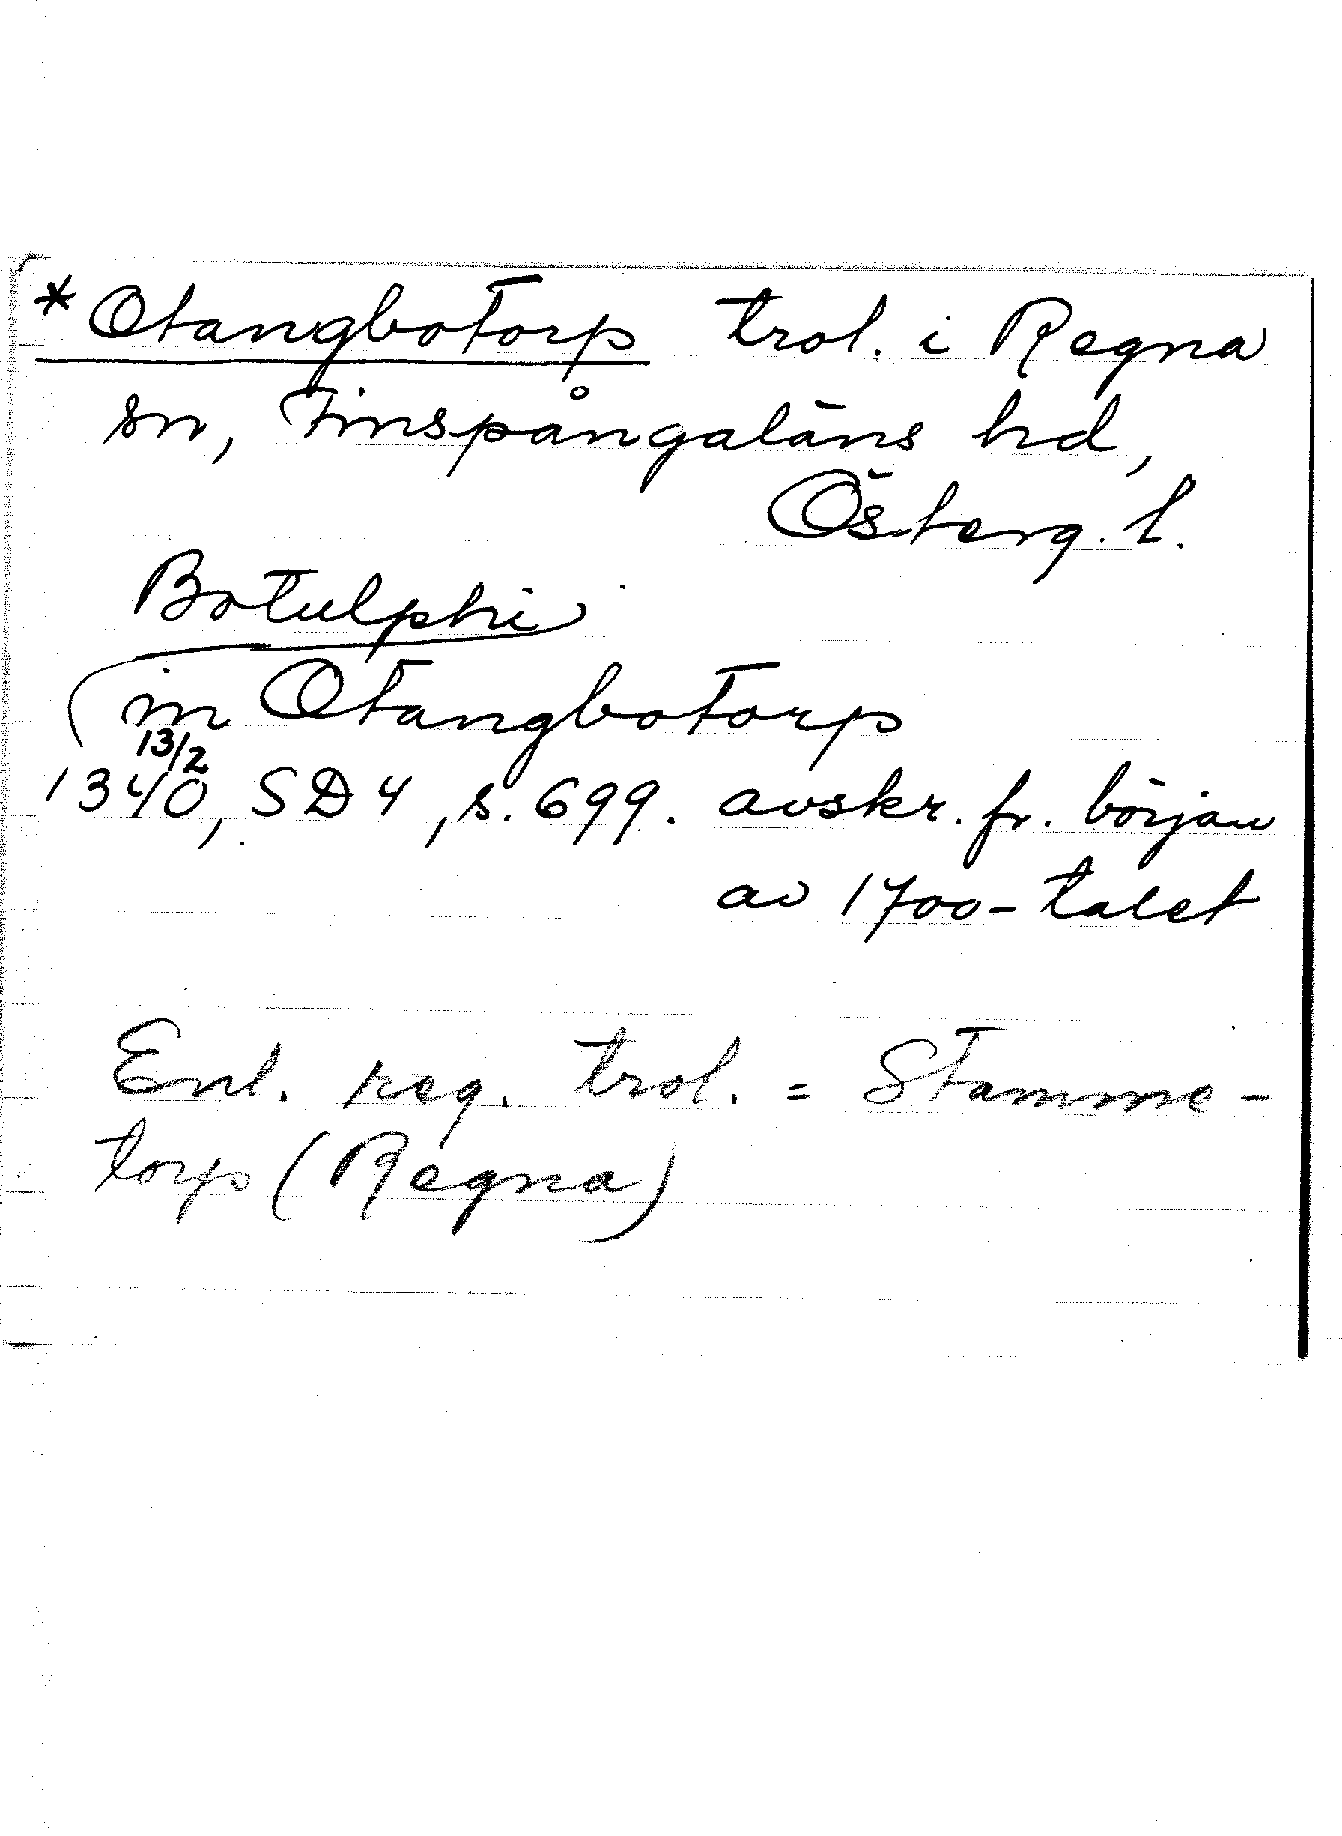 *Otangbotorp trol. i Regna
sn, Finspångaläns hd,
Österg. l.
Botulphi
in Otangbotorp
13/2
1340, SD 4, s. 699. avskr. fr. början
av 1700-talet
Enl. reg. trol. = Stamme-
torp (Regna)